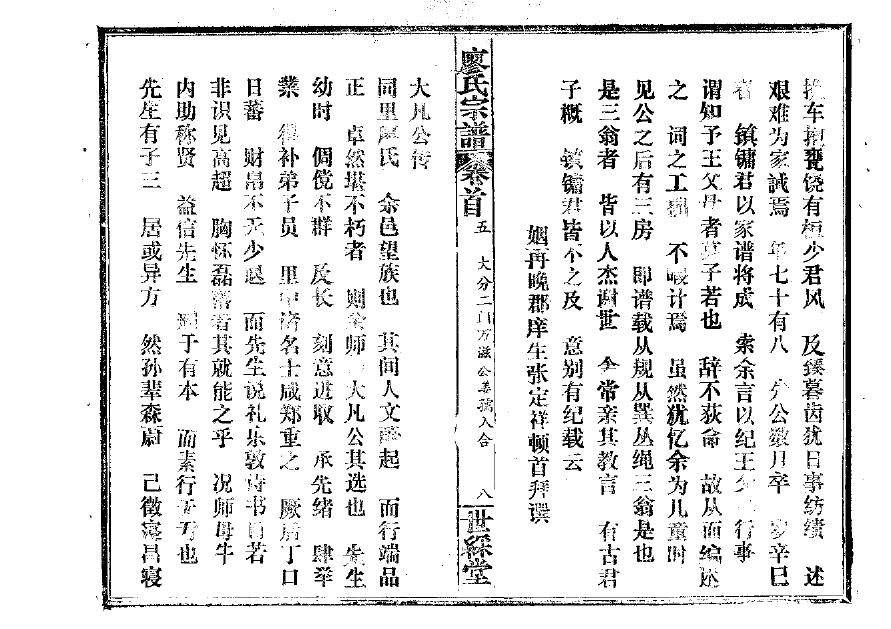 车 饶有桓少君风 及 暮齿犹日事纺绩 述
艰难为家诫焉 年七十有八 公数月卒 岁辛巳
者 镇镛君以家谱将成 索余言以纪王父 行事
谓知予王父母者莫子若也 辞不获命 故从而编述
之 词之工 不暇计焉 虽然犹忆余为儿童时
见公之后有三房 即谱载从规从巽丛绳三翁是也
是三翁者 皆以人杰谢世 余常亲其教言 有古君
子概 镇镛君皆不之及 意别有纪载云
姻再晚郡庠生张定祥顿首拜撰
廖氏宗谱 卷首 五 大分二 万滋公 合 八 世綵堂
大凡公传
同里廖氏 余邑望族也 其间人文 起 而行端品
正 卓然堪不朽者 则余师 大凡公其选也 先生
幼时 倜傥不群 及长 刻意进取 承先绪 肆举
业 补弟子员 里中 名士咸郑重之 厥后丁口
日蕃 财帛不无少退 而先生说礼乐敦诗书自若
非识见高超 胸怀磊落者其就能之乎 况师母牛
内助称贤 益信先生 于有本 而素行 也
先生有子三 居或异方 然孙辈森蔚 已徵 昌寝